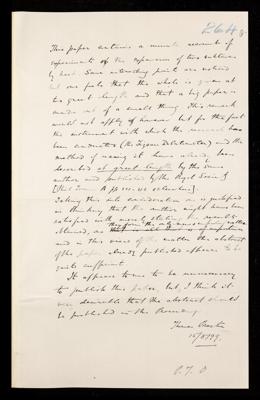 264
This paper contains a minute account of
experiments of the expansion of two substances
by heat. Some interesting points are noticed
but one feels that the whole is given at
too great length and that a big paper is
made out of a small thing. This remark
would not apply if however but for the fact
the instrument with which the research has
been conducted (the Fizeau Dilatometer) and the
method of using it have already been
described at great length by the same
author and published by the Royal Society
Taking this into consideration one is justified
in thinking that the author might have been
satisfied with merely stating the results
obtained, as
and in this view of the matter the abstract
of the paper already published appears to be
quite sufficient.
It appears to me to be unnecessary
to publish this paper, but, I think it
very desirable that the abstract should
be published in the Proceedings.
P. T. O